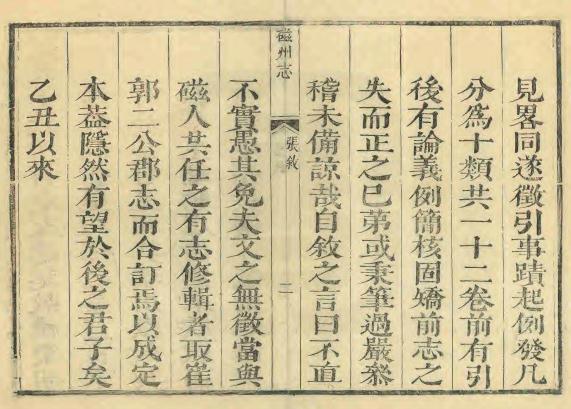 見畧同遂徵引事蹟起例發凡
分爲十類共一十二卷前有引
後有論義例簡核固矯前志之
失而正之已第或秉筆過嚴叅
磁州志
張敘
二
稽未備諒哉自敘之言曰不直
不實愚其免夫文之無徵當與
磁人共任之有志修輯者取崔
郭二公郡志而合訂焉以成定
本葢隱然有望於後之君子矣
乙丑以來